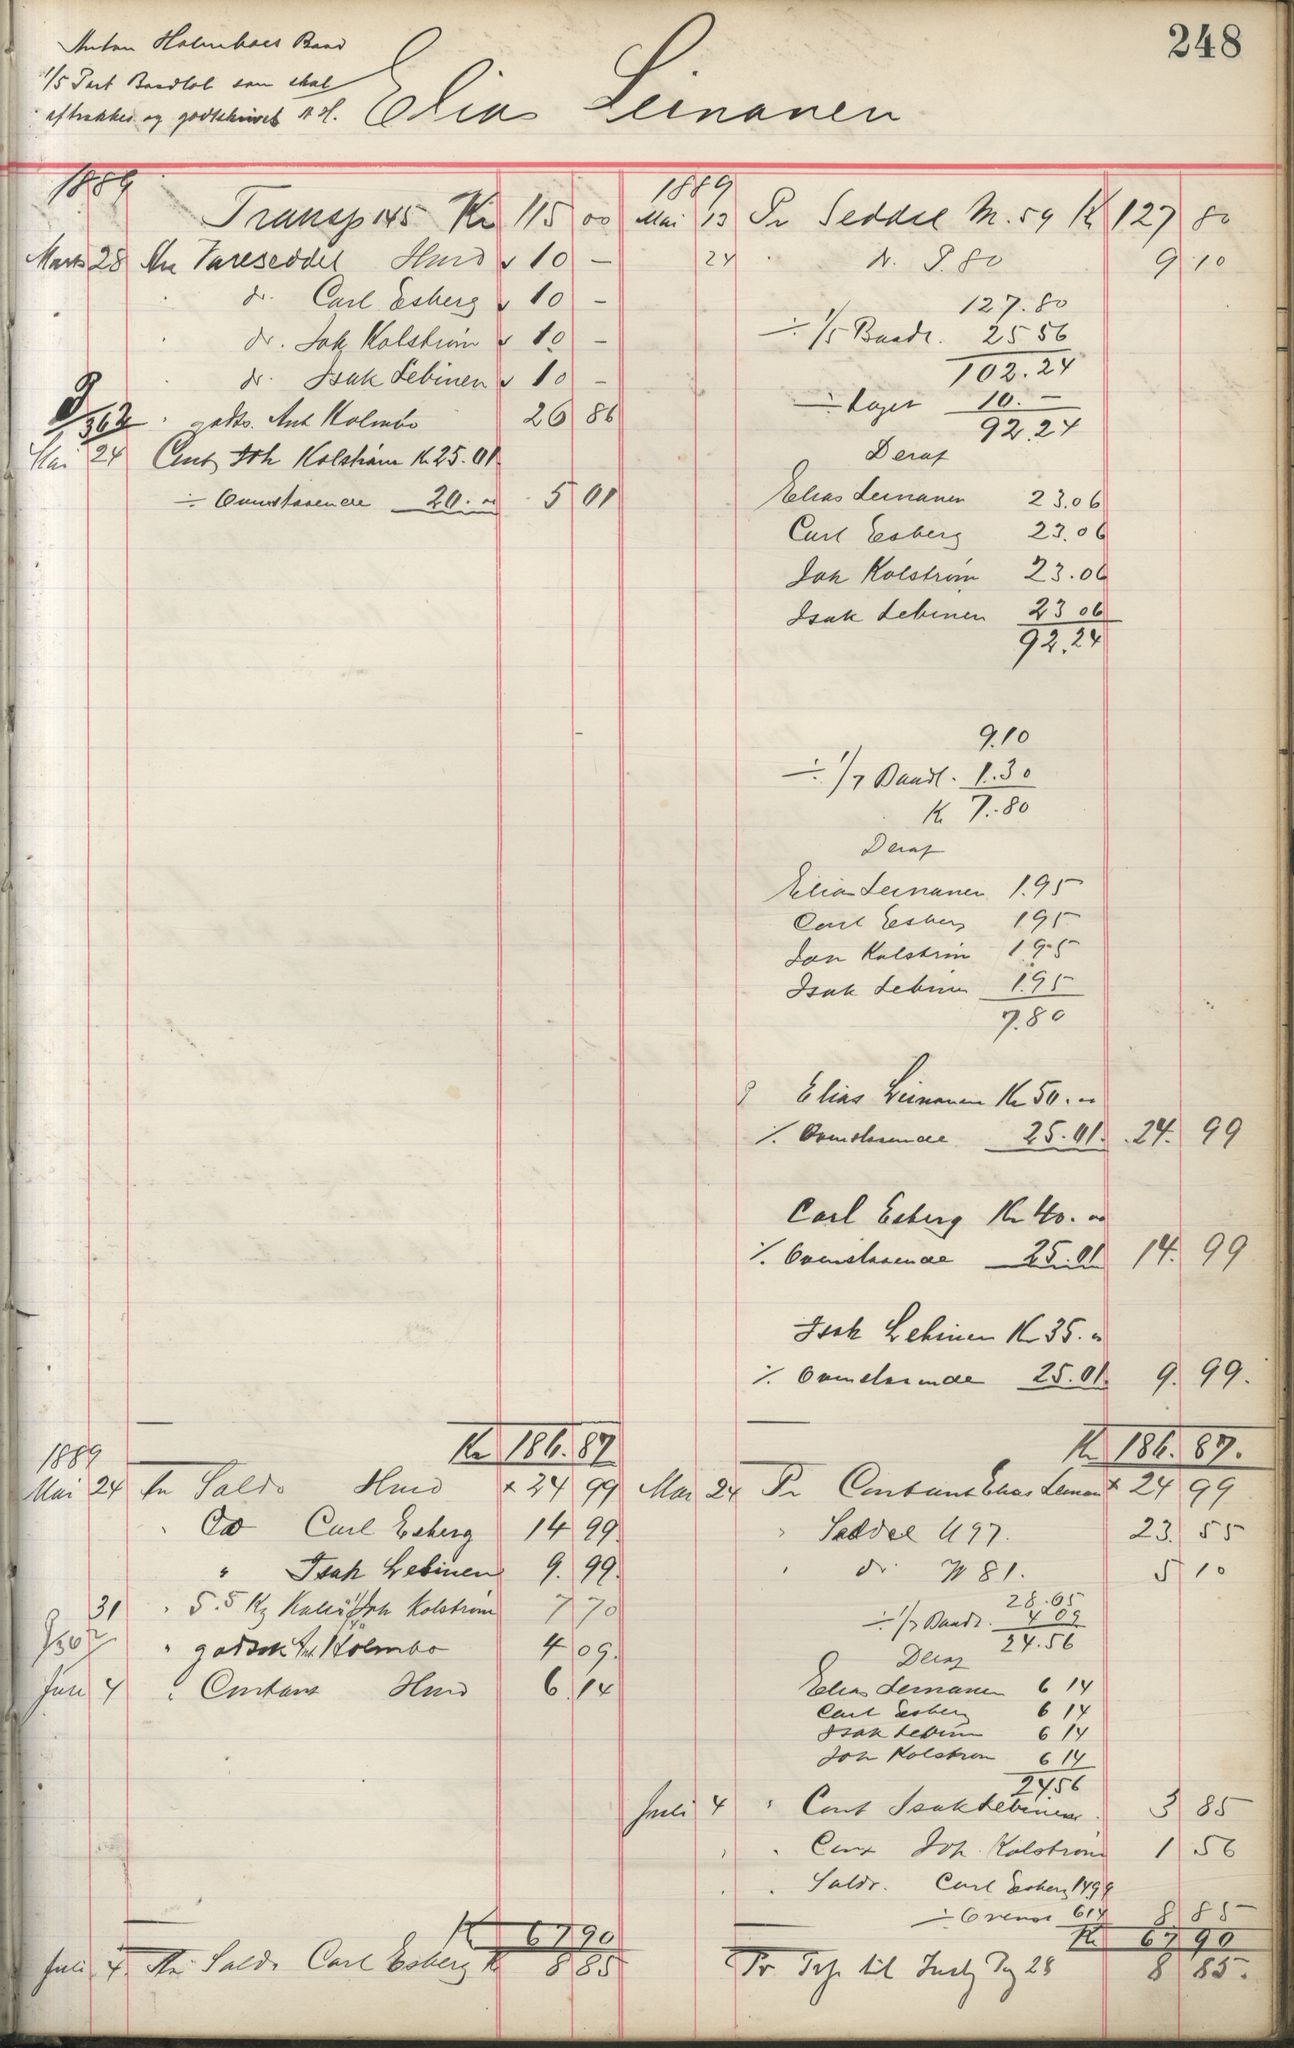 248
Anton Holmboes Baad
1/5 Part Baadlot som skal
aftrækkes og godtskrives A H.
Elias Leinanen
1889
Transp 145 Kr 115 00
Marts 28 An Vareseddel Hmd 10 —
" do. Carl Esberg 10 —
" do. Joh Kolstrøm 10 —
" do. Isak Lebinen 10 —
P/362 " godts. Ant Holmbo 26 86
Mai 24 Cont Joh Kolstrøm Kr 25.01
÷ Ovenstaaende 20. 00 5 01
Kr 186. 87
1889
Mai 24 An Saldo Hmd × 24 99
" Do Carl Esberg 14 99
" Isak Lebinen 9. 99.
31 " 5.5 Kg Joh Kolstrøm 7 70
" godsk Ant Holmbo 4 09.
Juli 4 " Contant Hmd 6 14
Kr 67 90
Juli 4 An Saldo Carl Esberg K 8 85
1889
Mai 13 Pr Seddel M. 59 Kr 127 80
24 " do. P. 80 9 10
127.80
÷ 1/5 Baadl. 25 56
102.24
÷ Lager 10. —
92.24
Deraf
Elias Leinanen 23.06
Carl Esberg 23.06
Joh Kolstrøm 23.06
Isak Lebinen 23 06
92.24
9.10
÷ 1/7 Baadl. 1.30
Kr 7.80
Deraf
Elias Leinanen 1.95
Carl Esberg 1 95
Joh Kolstrøm 1.95
Isak Lebinen 1.95
7.80
Elias Leinanen Kr 50. 00
÷ Ovenstaaende 25.01. 24. 99
Carl Esberg Kr 40. 00
÷ Ovenstaaende 25.01 14. 99
Isak Lebinen Kr 35. 00
÷ Ovenstaaende 25.01. 9. 99.
Kr 186. 87.
Mai 24 Pr Contant Elias Leinan × 24 99
" Seddel U 97. 23. 55
" do M 81. 5 10
28.65
÷ 1/7 Baadl. 4 09
24.56
Deraf
Elias Leinanen 6 14
Carl Esberg 6 14
Isak Lebinen 6 14
Joh Kolstrøm 6 14
24 56
Juli 4 " Cont Isak Lebinen 3 85
" " Cont Joh. Kolstrøm 1 56
" " Saldo. Carl Esberg 14 99
÷ Ovenst 6 14 8 85
Kr 67 90
Pr Trp til Pag 28 8 85.